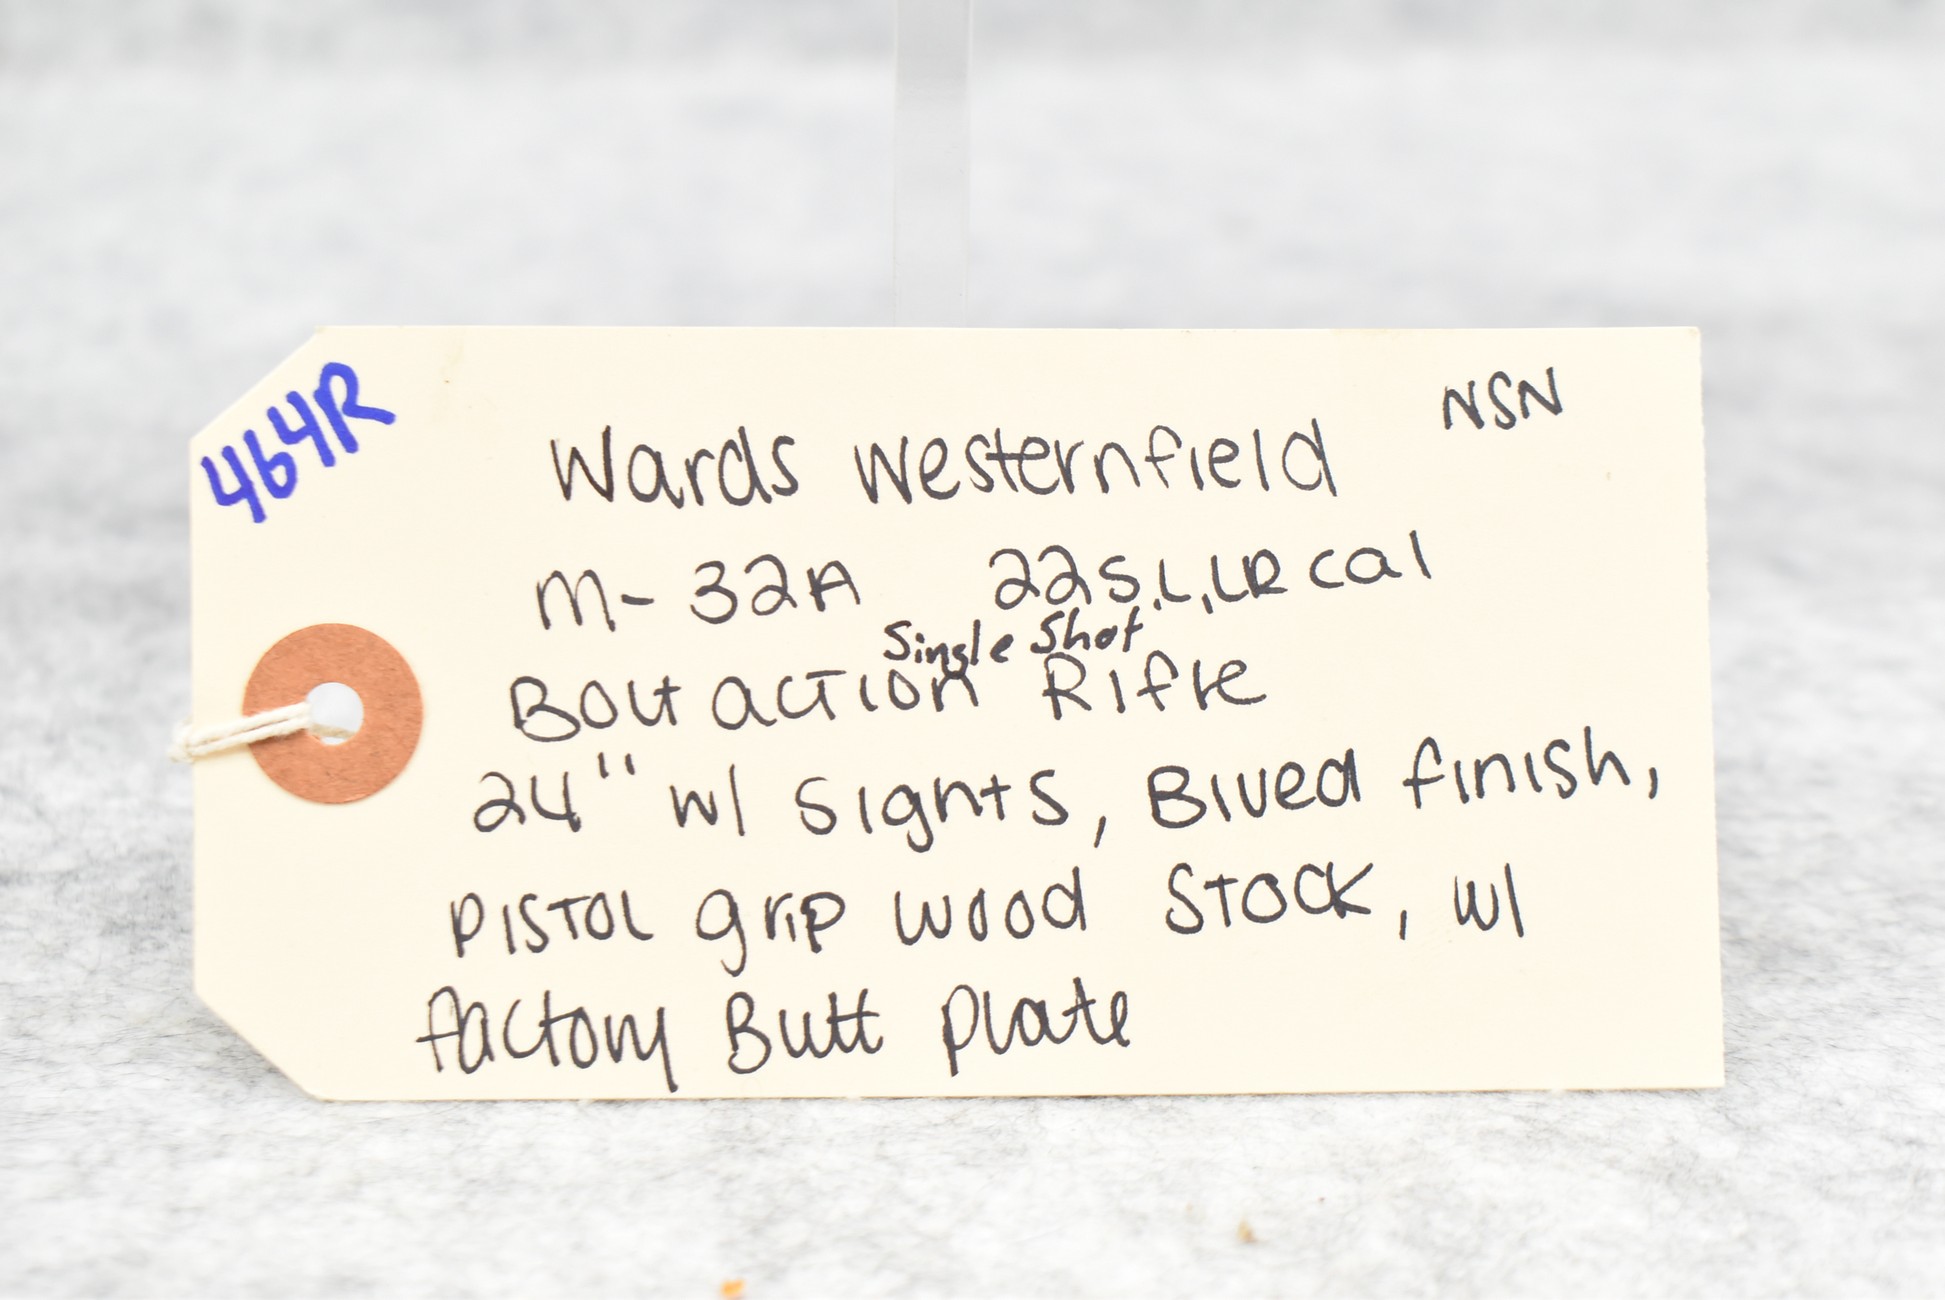 464R
NSN
Wards Westernfield
M-32A 22 S,L,LR cal
Single Shot
Bolt action Rifle
24" w/ Sights, Blued finish,
Pistol grip wood Stock, w/
factory Butt Plate